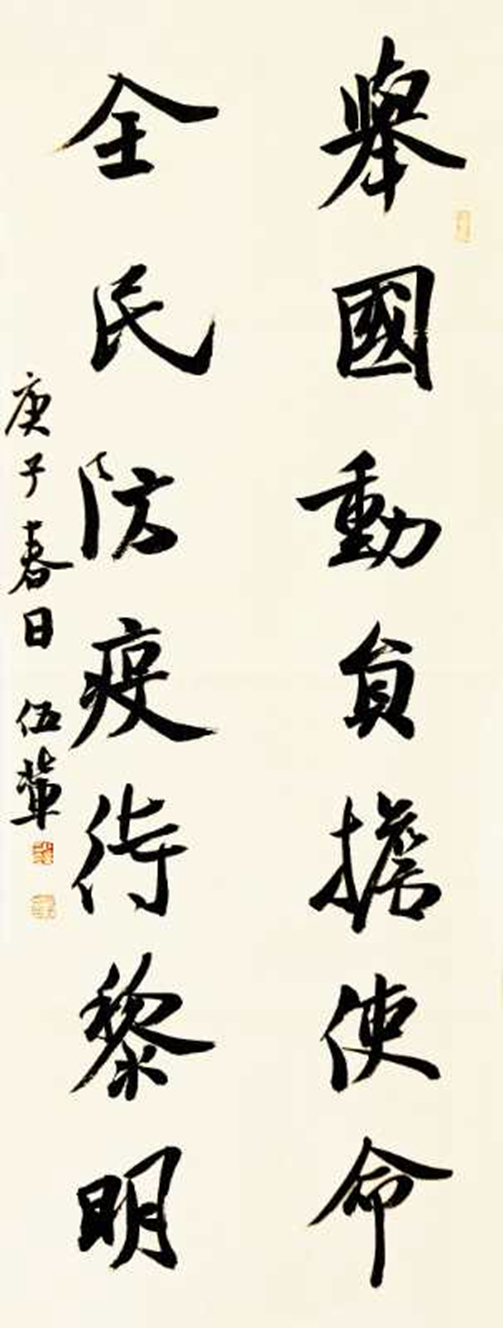 舉國動員擔使命
全民防疫待黎明
庚子春日 伍輩